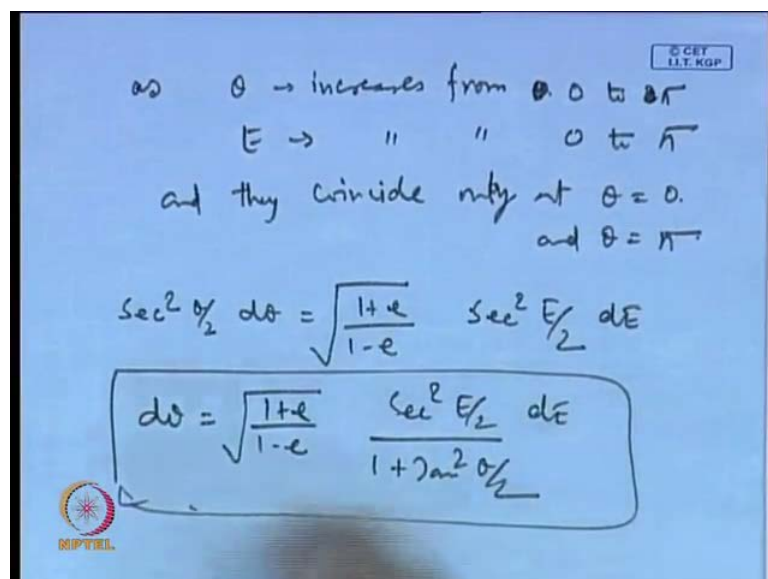 © CET
I.I.T. KGP
as θ → increases from 0 to π
E → " " 0 to π
and they coincide only at θ = 0.
and θ = π
sec² θ/2 dθ = √(1+e / 1-e) sec² E/2 dE
dθ = √(1+e / 1-e) sec² E/2 / 1 + tan² θ/2 dE
NPTEL